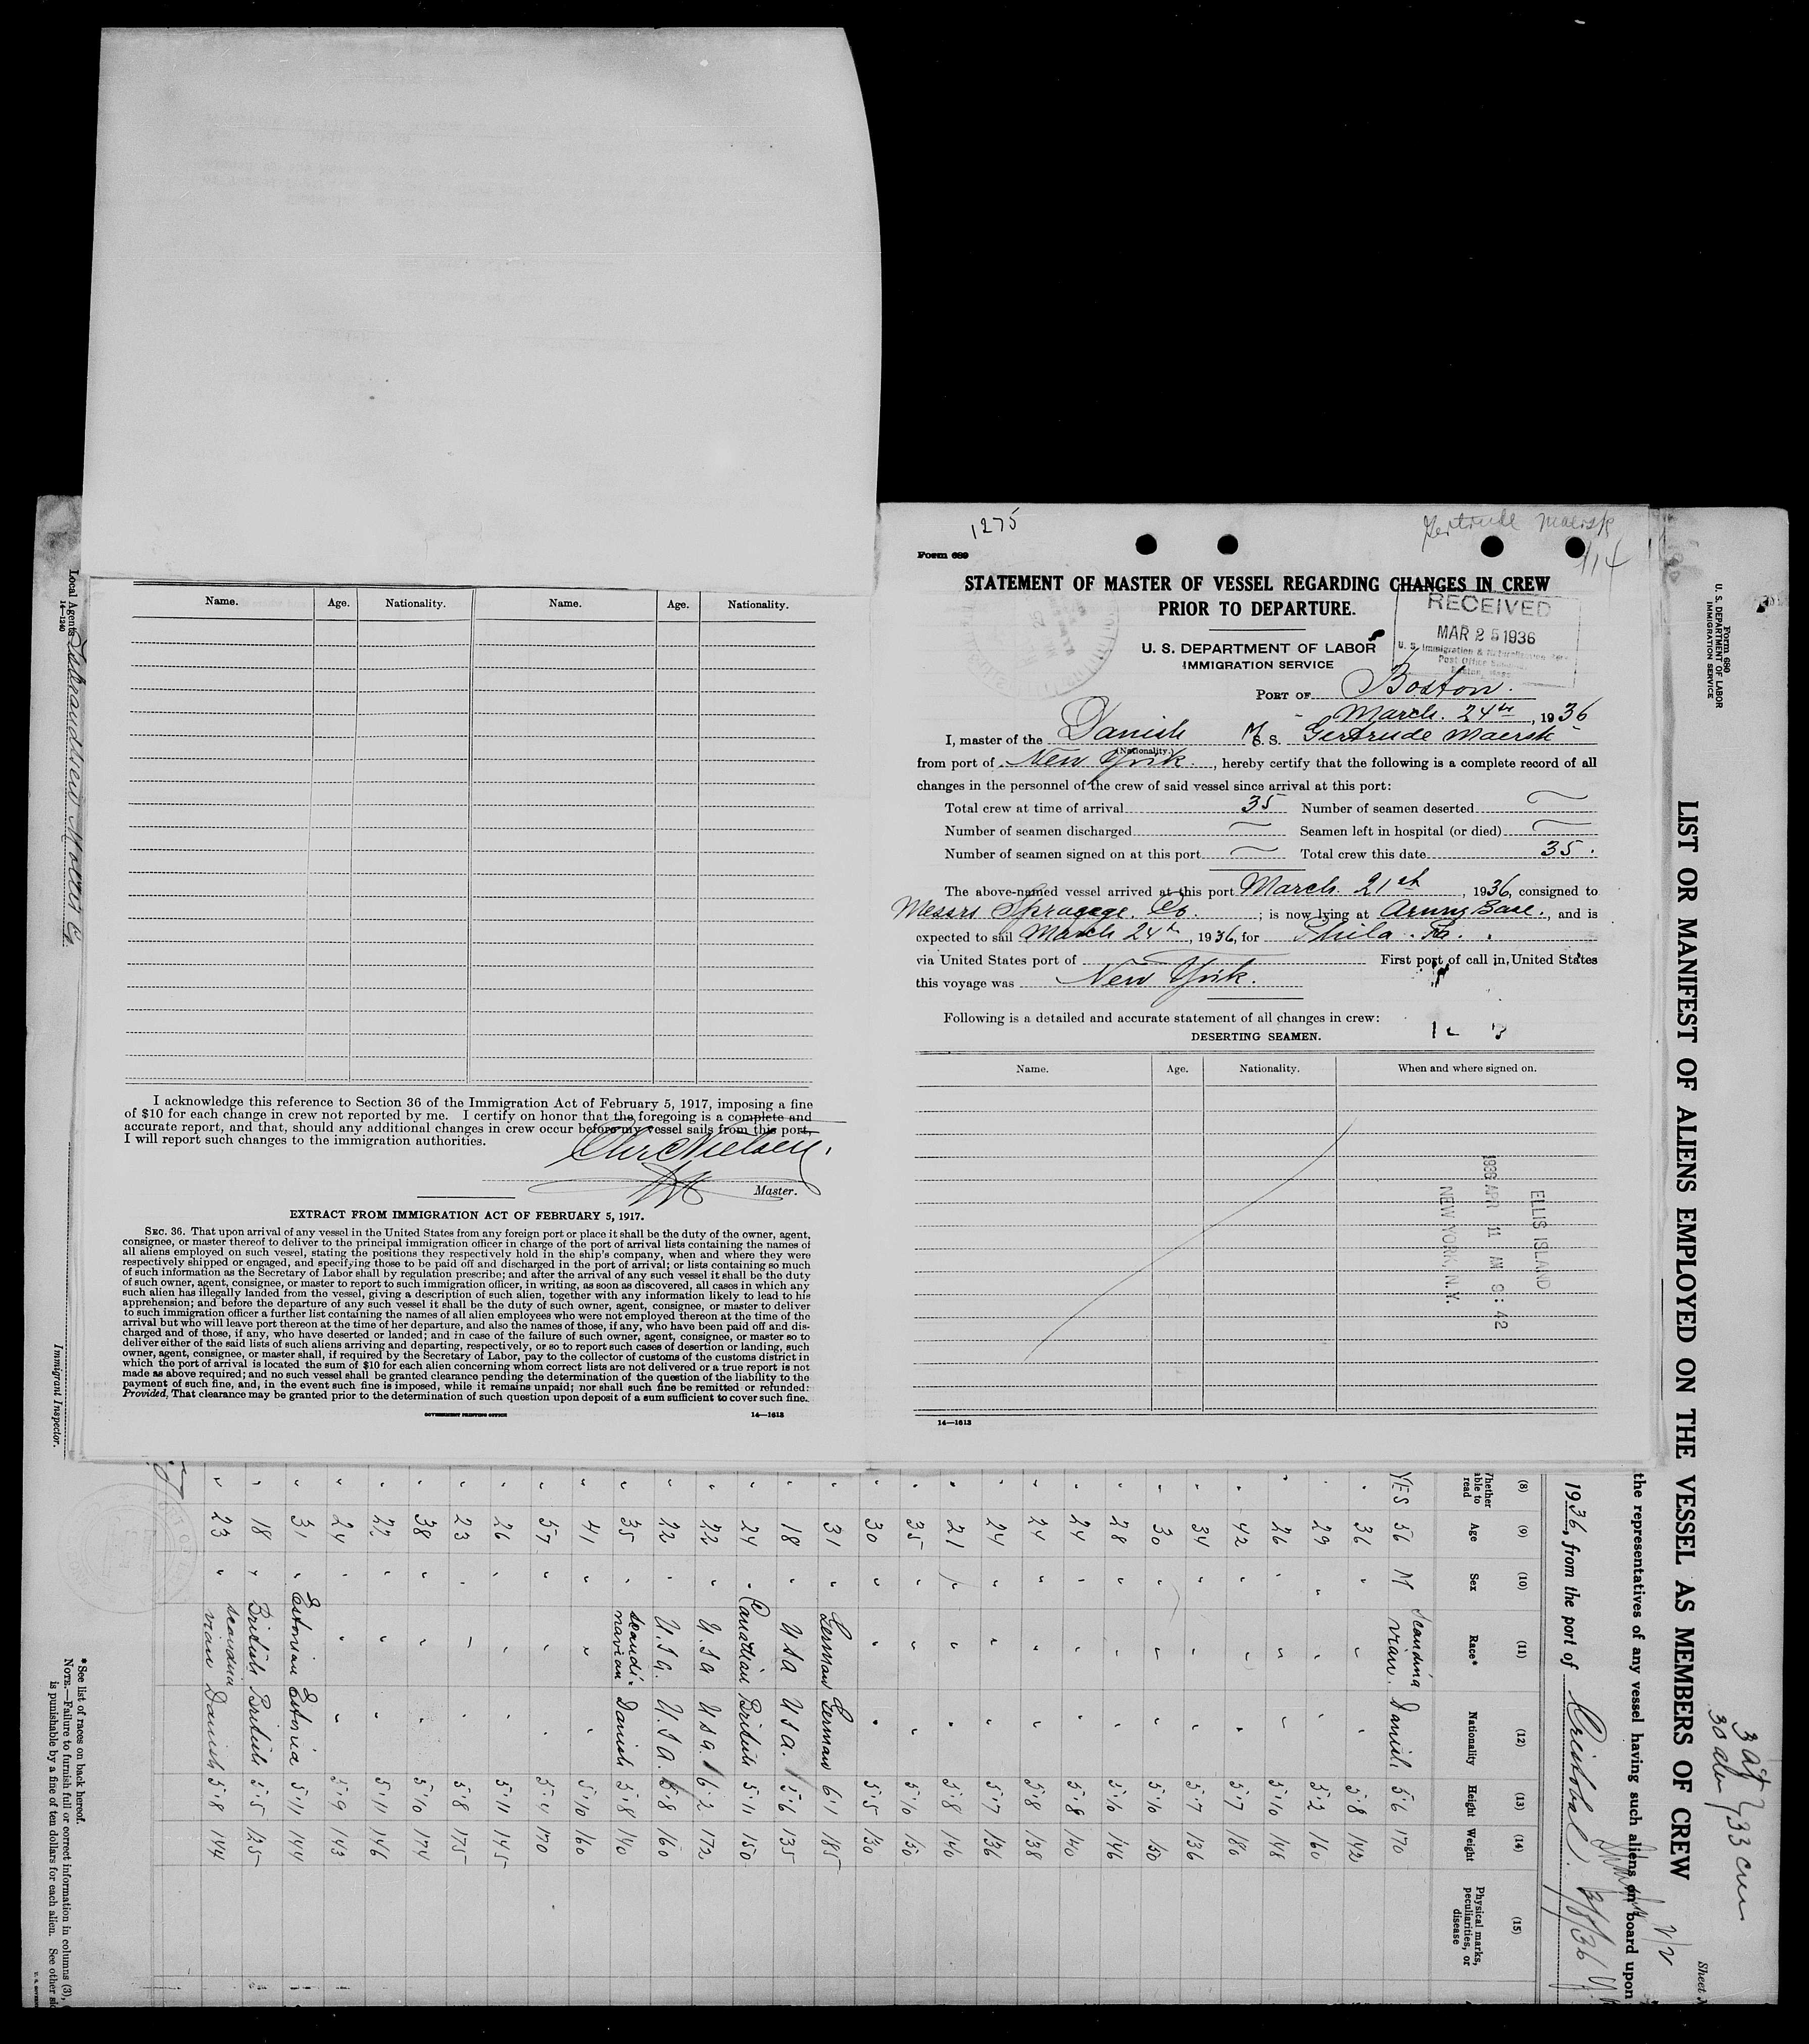 1275
Gertrude Maersk
114
Form 689
STATEMENT OF MASTER OF VESSEL REGARDING CHANGES IN CREW
PRIOR TO DEPARTURE.
RECEIVED
MAR 25 1936
U. S. DEPARTMENT OF LABOR
IMMIGRATION SERVICE
PORT OF Boston.
March. 24th, 1936
I, master of the Danish M. S. Gertrude Maersk
(Nationality.)
from port of New York., hereby certify that the following is a complete record of all
changes in the personnel of the crew of said vessel since arrival at this port:
Total crew at time of arrival 35 Number of seamen deserted
Number of seamen discharged Seamen left in hospital (or died)
Number of seamen signed on at this port Total crew this date 35.
The above-named vessel arrived at this port March. 21st, 1936, consigned to
Messrs Co.; is now lying at Army Base., and is
expected to sail March 24th, 1936, for Phila. Pa.
via United States port of First port of call in United States
this voyage was New York.
Following is a detailed and accurate statement of all changes in crew:
DESERTING SEAMEN.
Name. Age. Nationality. When and where signed on.
ELLIS ISLAND
1936 APR 11 AM 9:42
NEW YORK, N.Y.
14—1613
Name. Age. Nationality. Name. Age. Nationality.
I acknowledge this reference to Section 36 of the Immigration Act of February 5, 1917, imposing a fine
of $10 for each change in crew not reported by me. I certify on honor that the foregoing is a complete and
accurate report, and that, should any additional changes in crew occur before my vessel sails from this port,
I will report such changes to the immigration authorities.
Chr Nielsen.
Master.
EXTRACT FROM IMMIGRATION ACT OF FEBRUARY 5, 1917.
SEC. 36. That upon arrival of any vessel in the United States from any foreign port or place it shall be the duty of the owner, agent,
consignee, or master thereof to deliver to the principal immigration officer in charge of the port of arrival lists containing the names of
all aliens employed on such vessel, stating the positions they respectively hold in the ship's company, when and where they were
respectively shipped or engaged, and specifying those to be paid off and discharged in the port of arrival; or lists containing so much
of such information as the Secretary of Labor shall by regulation prescribe; and after the arrival of any such vessel it shall be the duty
of such owner, agent, consignee, or master to report to such immigration officer, in writing, as soon as discovered, all cases in which any
such alien has illegally landed from the vessel, giving a description of such alien, together with any information likely to lead to his
apprehension; and before the departure of any such vessel it shall be the duty of such owner, agent, consignee, or master to deliver
to such immigration officer a further list containing the names of all alien employees who were not employed thereon at the time of the
arrival but who will leave port thereon at the time of her departure, and also the names of those, if any, who have been paid off and dis-
charged and of those, if any, who have deserted or landed; and in case of the failure of such owner, agent, consignee, or master so to
deliver either of the said lists of such aliens arriving and departing, respectively, or so to report such cases of desertion or landing, such
owner, agent, consignee, or master shall, if required by the Secretary of Labor, pay to the collector of customs of the customs district in
which the port of arrival is located the sum of $10 for each alien concerning whom correct lists are not delivered or a true report is not
made as above required; and no such vessel shall be granted clearance pending the determination of the question of the liability to the
payment of such fine, and, in the event such fine is imposed, while it remains unpaid; nor shall such fine be remitted or refunded:
Provided, That clearance may be granted prior to the determination of such question upon deposit of a sum sufficient to cover such fine.
GOVERNMENT PRINTING OFFICE 14—1613
Form 680
U. S. DEPARTMENT OF LABOR
IMMIGRATION SERVICE
LIST OR MANIFEST OF ALIENS EMPLOYED ON THE VESSEL AS MEMBERS OF CREW
the representatives of any vessel having such aliens on board upon
1936, from the port of Cristobal. 3/8/36
33 crew
(8) (9) (10) (11) (12) (13) (14) (15)
Whether able to read Age Sex Race* Nationality Height Weight Physical marks, peculiarities, or disease
YES 56 M Scandinavian. Danish 5 6 170
" 36 " " " 5 8 142
" 29 " " " 5 2 160
" 26 " " " 5 10 148
" 42 " " " 5 7 180
" 34 " " " 5 7 136
" 30 " " " 5 10 150
" 28 " " " 5 10 146
" 24 " " " 5 8 140
" 24 " " " 5 8 138
" 24 " " " 5 7 136
" 21 " " " 5 8 140
" 35 " " " 5 10 150
" 30 " " " 5 5 130
" 31 " German German 6 1 185
" 18 " USA USA. 5 6 135
" 24 " Canadian British 5 11 150
" 22 " U.S.A U.S.A. 6 2 172
" 22 " U.S.A. U.S.A. 5 8 160
" 35 " Scandinavian Danish 5 8 140
" 41 " " " 5 10 160
" 57 " " " 5 11 170
" 26 " " " 5 11 145
" 23 " " " 5 8 175
" 38 " " " 5 10 174
" 22 " " " 5 11 146
" 24 " " " 5 9 143
" 31 " Estonian Estonia 5 11 144
" 18 " British British 5 5 125
" 23 " Scandinavian Danish 5 8 144
Local Agents
14—1240
Immigrant Inspector.
*See list of races on back hereof.
NOTE.—Failure to furnish full or correct information in columns (3),
is punishable by a fine of ten dollars for each alien. See other